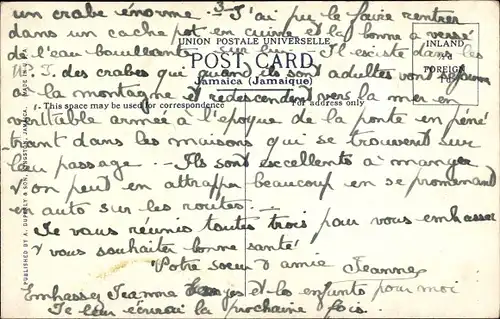 un crabe énorme - 3 - J'ai pu le faire rentrer
dans un cache pot en cuivre et la bonne a versé
de l'eau bouillante sur lui - Il existe dans les
UNION POSTALE UNIVERSELLE.
POST CARD
Jamaica (Jamaique)
INLAND
FOREIGN
1d.
This space may be used for correspondence
For address only
I. des crabes qui quand ils sont adultes vont
la montagne et redescendent vers la mer en
veritable armée à l'epoque de la ponte en péné
trant dans les maisons qui se trouvent sur
leur passage - Ils sont excellents à manger
& on peut en attrapper beaucoup en se promenant
en auto sur les routes -
Je vous réunis toutes trois pour vous embrasser
& vous souhaiter bonne santé
Votre soeur & amie Jeanne
Embrassez Jeanne et les enfants pour moi
Je leur écrirai la prochaine fois.
PUBLISHED BY A. DUPERLY & SON, KINGSTON, JAMAICA.